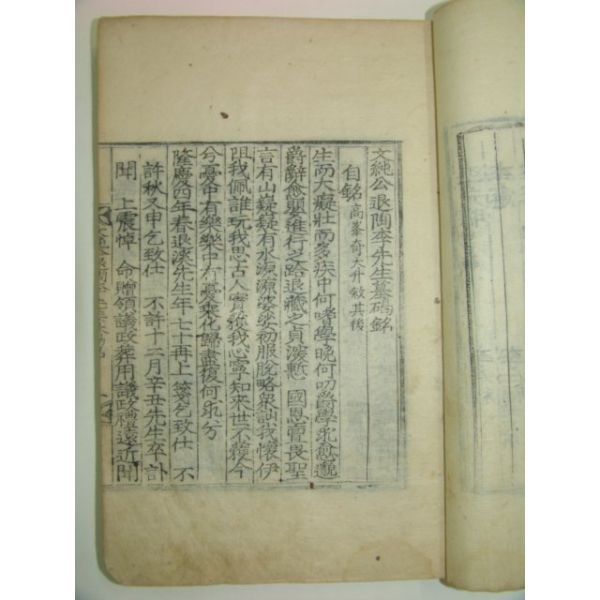 文純公退陶李先生墓碣銘
自銘 高峯奇大升敍其後
生而大癡壯而多疾中何嗜學晚何叨爵學求愈邈
爵辭愈嬰進行之跲退藏之貞深慙 國恩亶畏聖
言有山嶷嶷有水源源婆娑初服脫略衆訕我懷伊
阻我佩誰玩我思古人實獲我心寧知來世不獲今
兮憂中有樂樂中有憂乘化歸盡復何求兮
隆慶四年春退溪先生年七十再上箋乞致仕 不
許秋又申乞致仕 不許十二月辛丑先生卒訃
聞 上震悼 命贈領議政葬用議政禮遠近聞